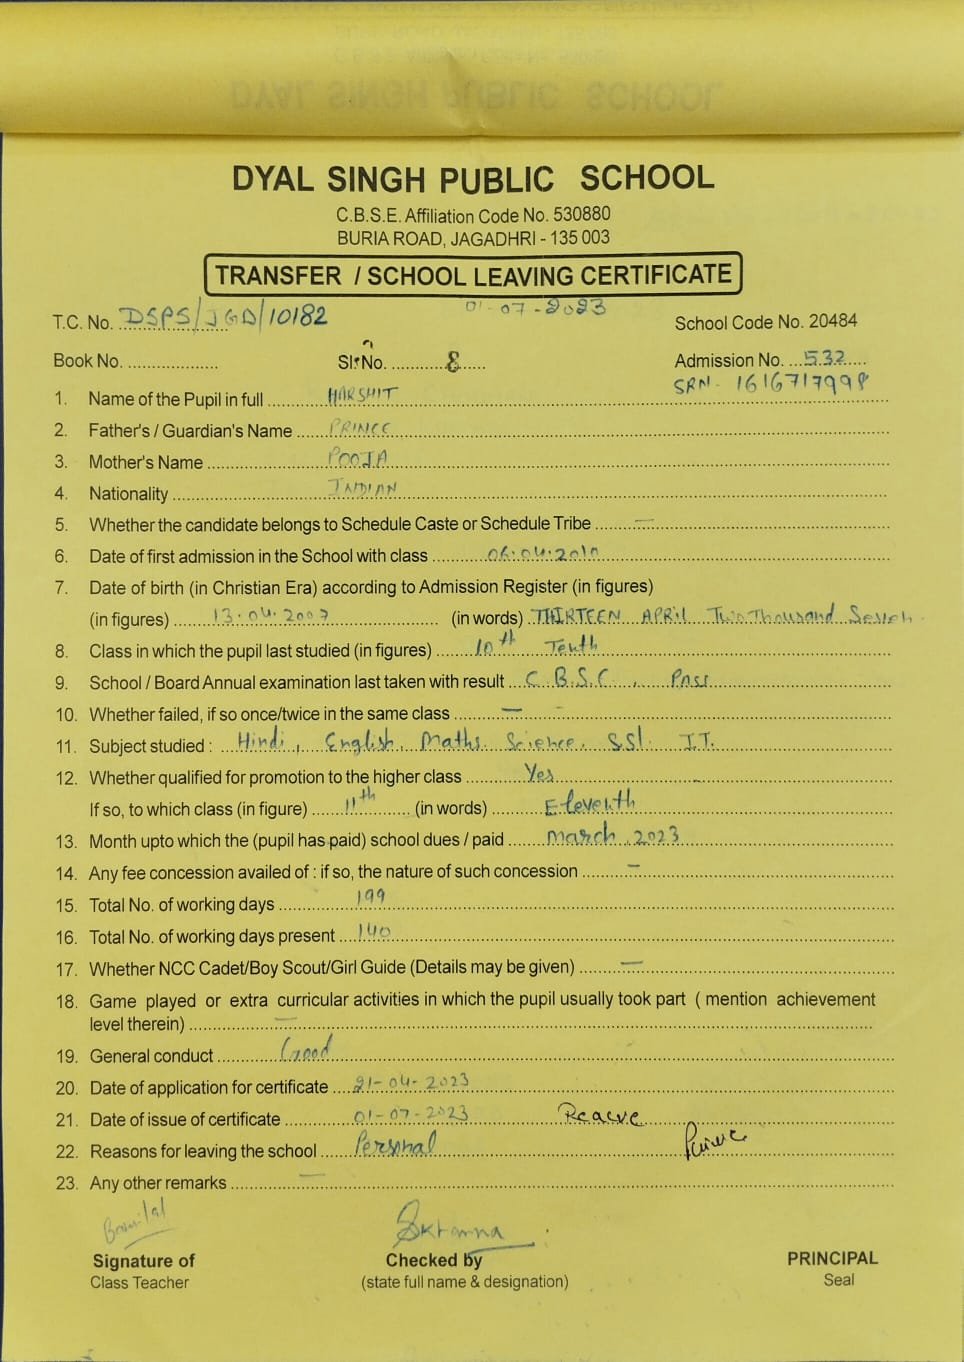 DYAL SINGH PUBLIC SCHOOL
C.B.S.E. Affiliation Code No. 530880
BURIA ROAD, JAGADHRI - 135 003
TRANSFER / SCHOOL LEAVING CERTIFICATE
01-07-2023
T.C. No. DSPS/JGD/10182 School Code No. 20484
Book No. .................. Sl. No. ............8 Admission No. ...532.....
SRN- 1616717998
1. Name of the Pupil in full ............ HARSHIT
2. Father's / Guardian's Name ....... PRINCE
3. Mother's Name ............ POOJA
4. Nationality ............ INDIAN
5. Whether the candidate belongs to Schedule Caste or Schedule Tribe ........ —
6. Date of first admission in the School with class ............ 06.04.2010
7. Date of birth (in Christian Era) according to Admission Register (in figures)
(in figures) ........ 13.04.2007 ........ (in words) THIRTEEN APRIL Two Thousand Seven
8. Class in which the pupil last studied (in figures) ........ 10th Tenth
9. School / Board Annual examination last taken with result ... C.B.S.E., Pass
10. Whether failed, if so once/twice in the same class ........ —
11. Subject studied : Hindi, English, Maths, Science, S.St. I.T.
12. Whether qualified for promotion to the higher class ........ Yes
If so, to which class (in figure) ...... 11th ...... (in words) ........ Eleventh
13. Month upto which the (pupil has paid) school dues / paid ........ March, 2023
14. Any fee concession availed of : if so, the nature of such concession ........ —
15. Total No. of working days ............ 199
16. Total No. of working days present .... 140
17. Whether NCC Cadet/Boy Scout/Girl Guide (Details may be given) ........ —
18. Game played or extra curricular activities in which the pupil usually took part ( mention achievement
level therein) ............ —
19. General conduct ............ Good
20. Date of application for certificate .... 21-04-2023
21. Date of issue of certificate ............ 01-07-2023
22. Reasons for leaving the school ..... Personal
23. Any other remarks ............ —
Signature of Checked by PRINCIPAL
Class Teacher (state full name & designation) Seal